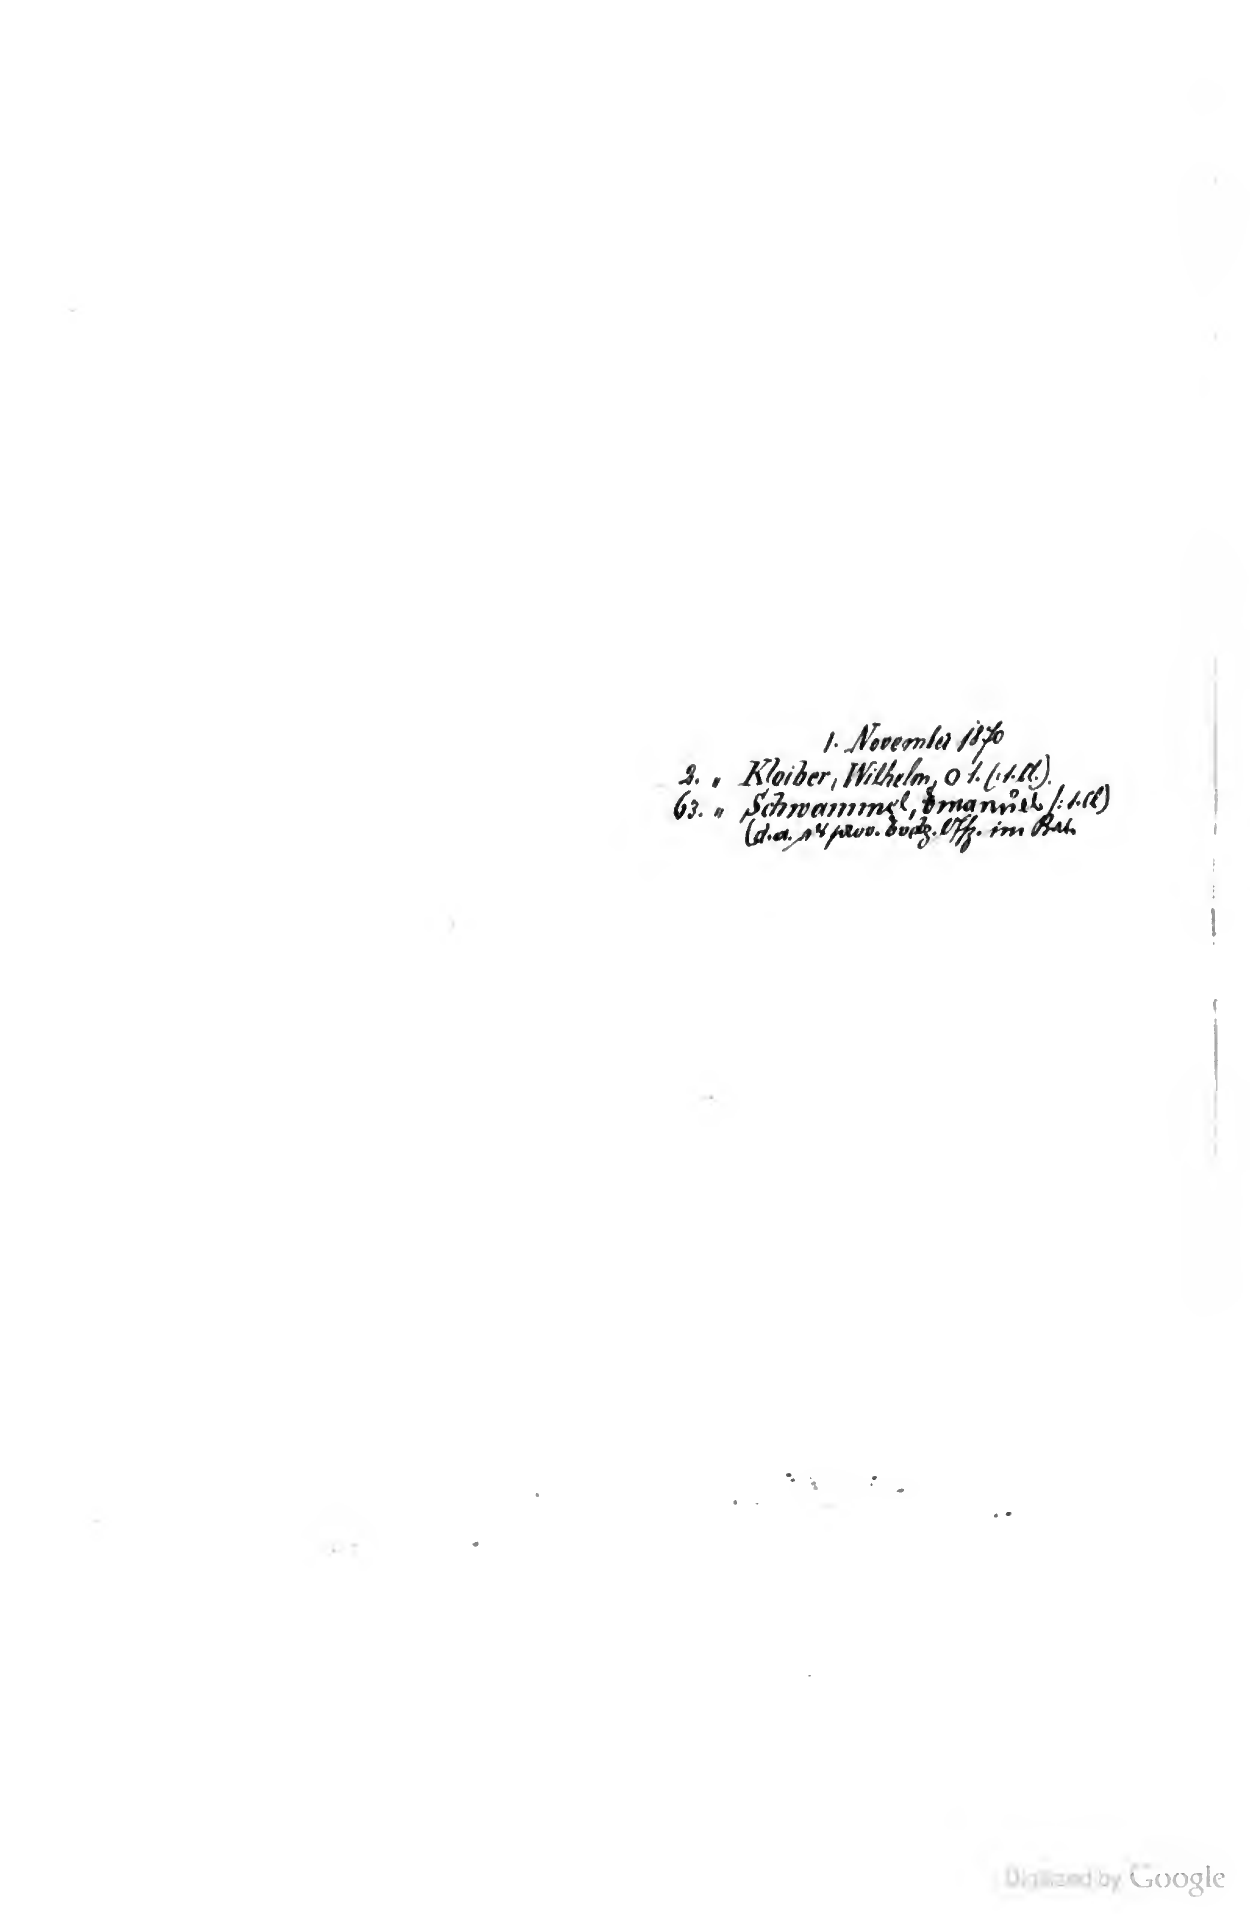 1. November 1870
2. " Kloiber, Wilhelm, O 1. (: 1. Cl.).
63. " Schwammel, Emanuel (: 1. Cl)
(d. a. prov. Evdz. Off. im
Digitized by Google